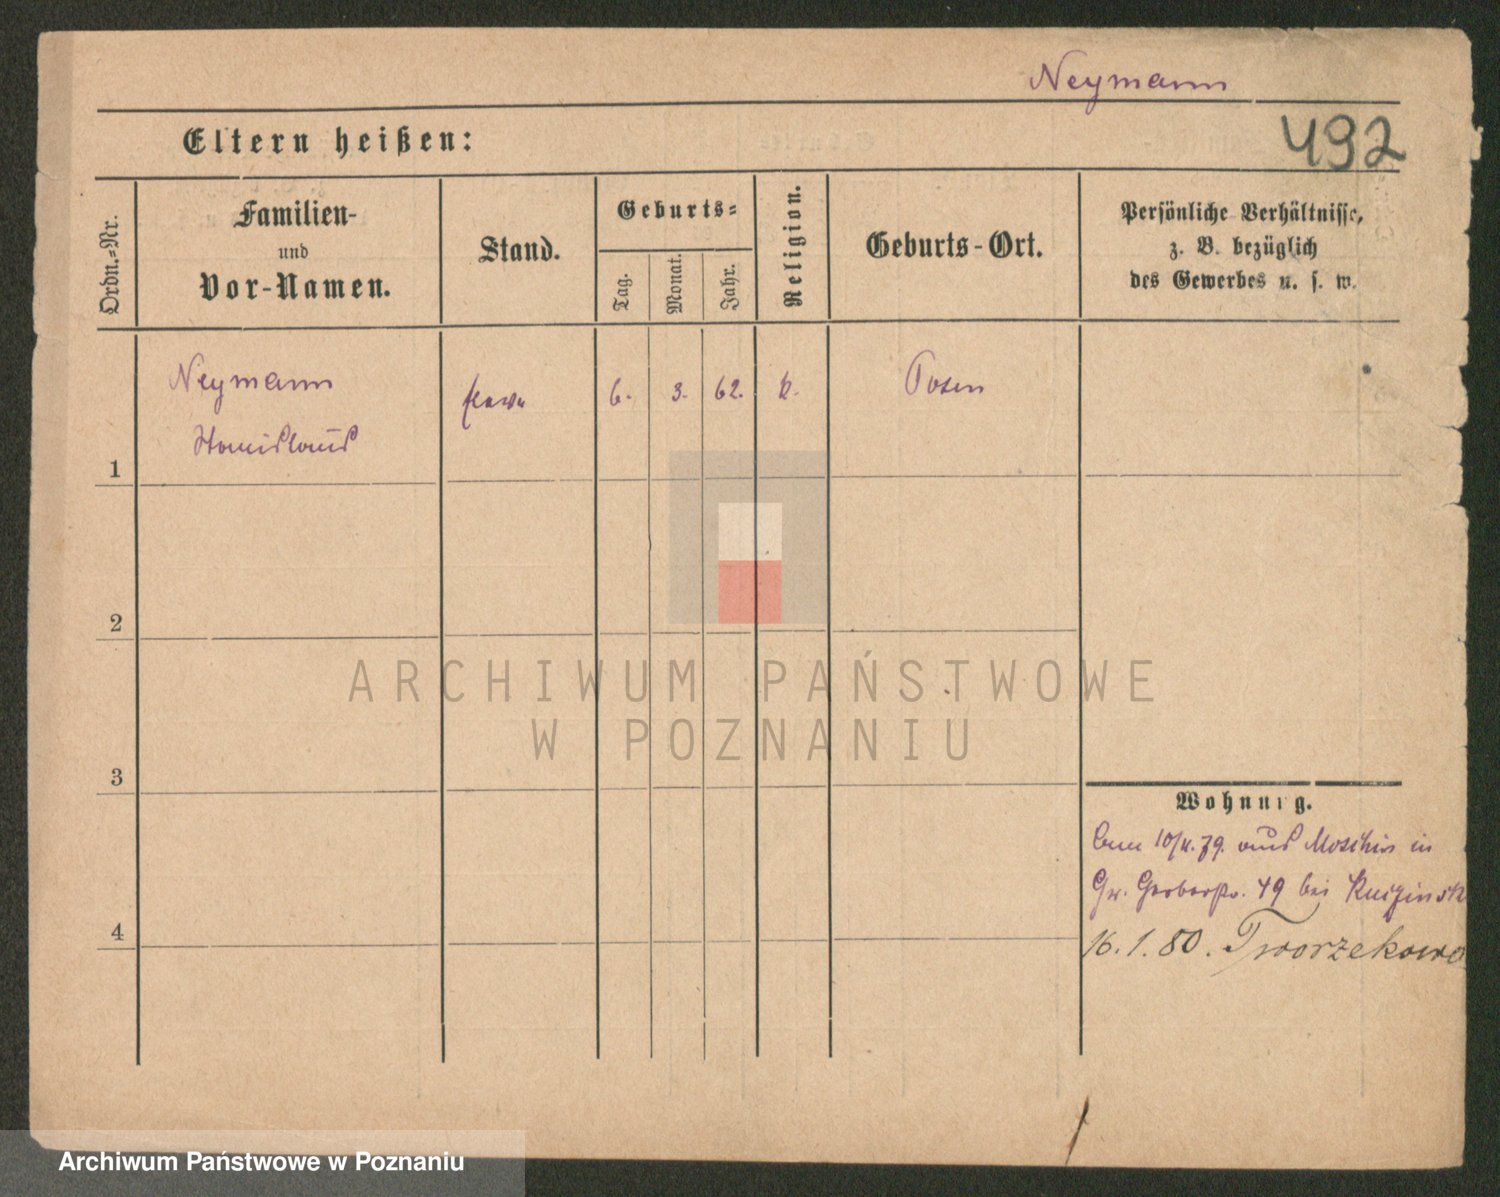 Neymann
492
Eltern heißen:
Ordn.-Nr.
Familien-
und
Vor-Namen.
Stand.
Geburts-
Tag.
Monat.
Jahr.
Religion.
Geburts-Ort.
Persönliche Verhältnisse,
z. B. bezüglich
des Gewerbes u. s. w.
Neymann
Stanislaus
6. 3. 62. k. Posen
1
2
3
4
ARCHIWUM PAŃSTWOWE
W POZNANIU
Wohnung.
10/4. 79. aus Moschin in
Gr. Gerberstr. 49 bei
16.1.80. Tworzekowo
Archiwum Państwowe w Poznaniu